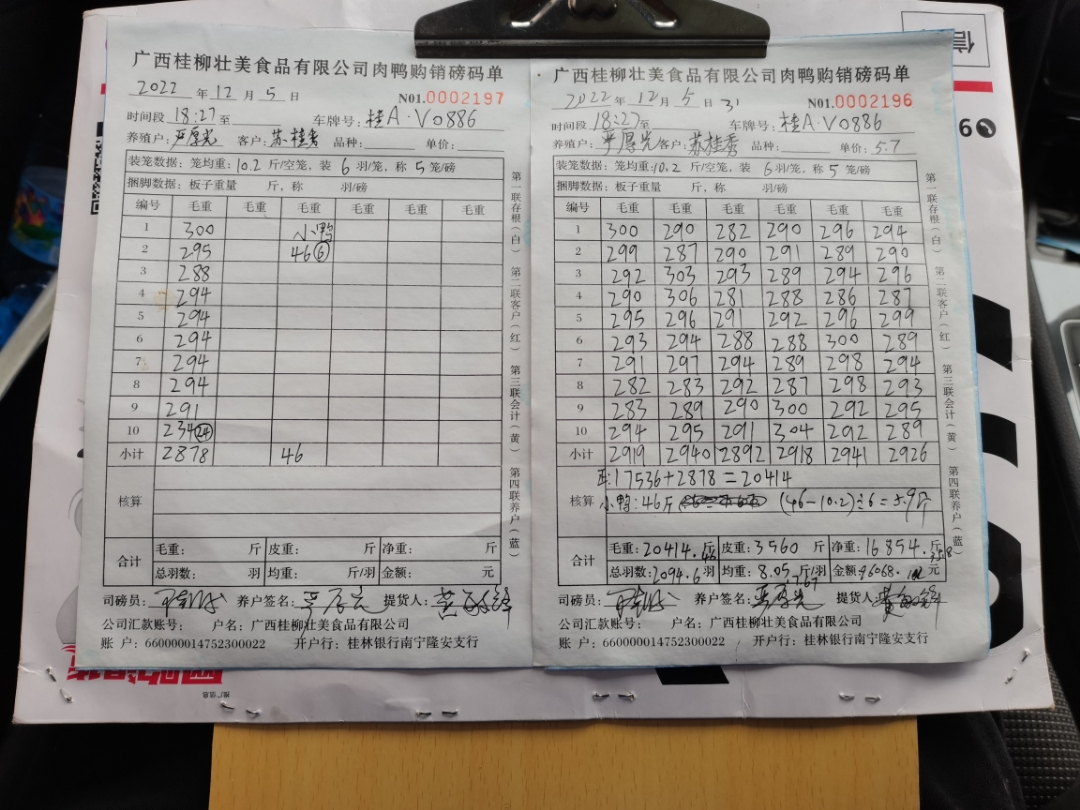 广西桂柳壮美食品有限公司肉鸭购销磅码单
2022 年 12 月 5 日 N01.0002197
时间段 18:27至 车牌号: 桂A·V0886
养殖户: 严厚光 客户: 苏桂秀 品种: 单价:
装笼数据: 笼均重: 10.2 斤/空笼, 装 6 羽/笼, 称 5 笼/磅
捆脚数据: 板子重量 斤, 称 羽/磅
编号 毛重 毛重 毛重 毛重 毛重 毛重
1 300 小鸭
2 295 46⑥
3 288
4 294
5 294
6 294
7 294
8 294
9 291
10 234㉔
小计 2878 46
核算
合计 毛重: 斤 皮重: 斤 净重: 斤
总羽数: 羽 均重: 斤/羽 金额: 元
司磅员: 养户签名: 严厚光 提货人:
公司汇款账号: 户名: 广西桂柳壮美食品有限公司
账 户: 660000014752300022 开户行: 桂林银行南宁隆安支行
第一联存根(白) 第二联客户(红) 第三联会计(黄) 第四联养户(蓝)
广西桂柳壮美食品有限公司肉鸭购销磅码单
2022 年 12 月 5 日 N01.0002196
时间段 18:27至 车牌号: 桂A·V0886
养殖户: 严厚光 客户: 苏桂秀 品种: 单价: 5.7
装笼数据: 笼均重: 10.2 斤/空笼, 装 6 羽/笼, 称 5 笼/磅
捆脚数据: 板子重量 斤, 称 羽/磅
编号 毛重 毛重 毛重 毛重 毛重 毛重
1 300 290 282 290 296 294
2 299 287 290 291 289 290
3 292 303 293 289 294 296
4 290 306 281 288 286 287
5 295 296 291 292 296 299
6 293 294 288 288 300 289
7 291 297 294 289 298 294
8 282 283 292 287 298 293
9 283 289 290 300 292 295
10 294 295 291 304 292 289
小计 2919 2940 2892 2918 2941 2926
正:17536+2878=20414
核算 小鸭:46斤 (46-10.2)÷6=5.9斤
合计 毛重: 20414. 斤 皮重: 3560 斤 净重: 16854. 斤
总羽数: 2094.6 羽 均重: 8.05 斤/羽 金额: 96068. 元
司磅员: 养户签名: 严厚光 提货人:
公司汇款账号: 户名: 广西桂柳壮美食品有限公司
账 户: 660000014752300022 开户行: 桂林银行南宁隆安支行
第一联存根(白) 第二联客户(红) 第三联会计(黄) 第四联养户(蓝)
推广信息